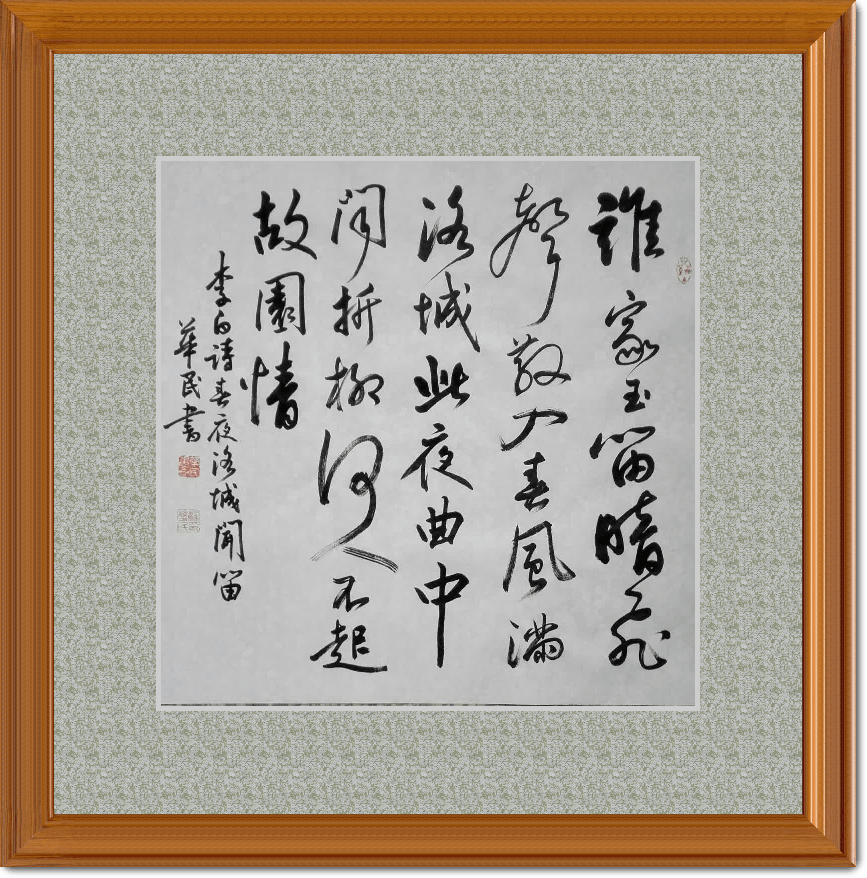 誰家玉笛暗飛
聲散入春風滿
洛城此夜曲中
聞折柳何人不起
故園情
李白詩春夜洛城聞笛
華民書